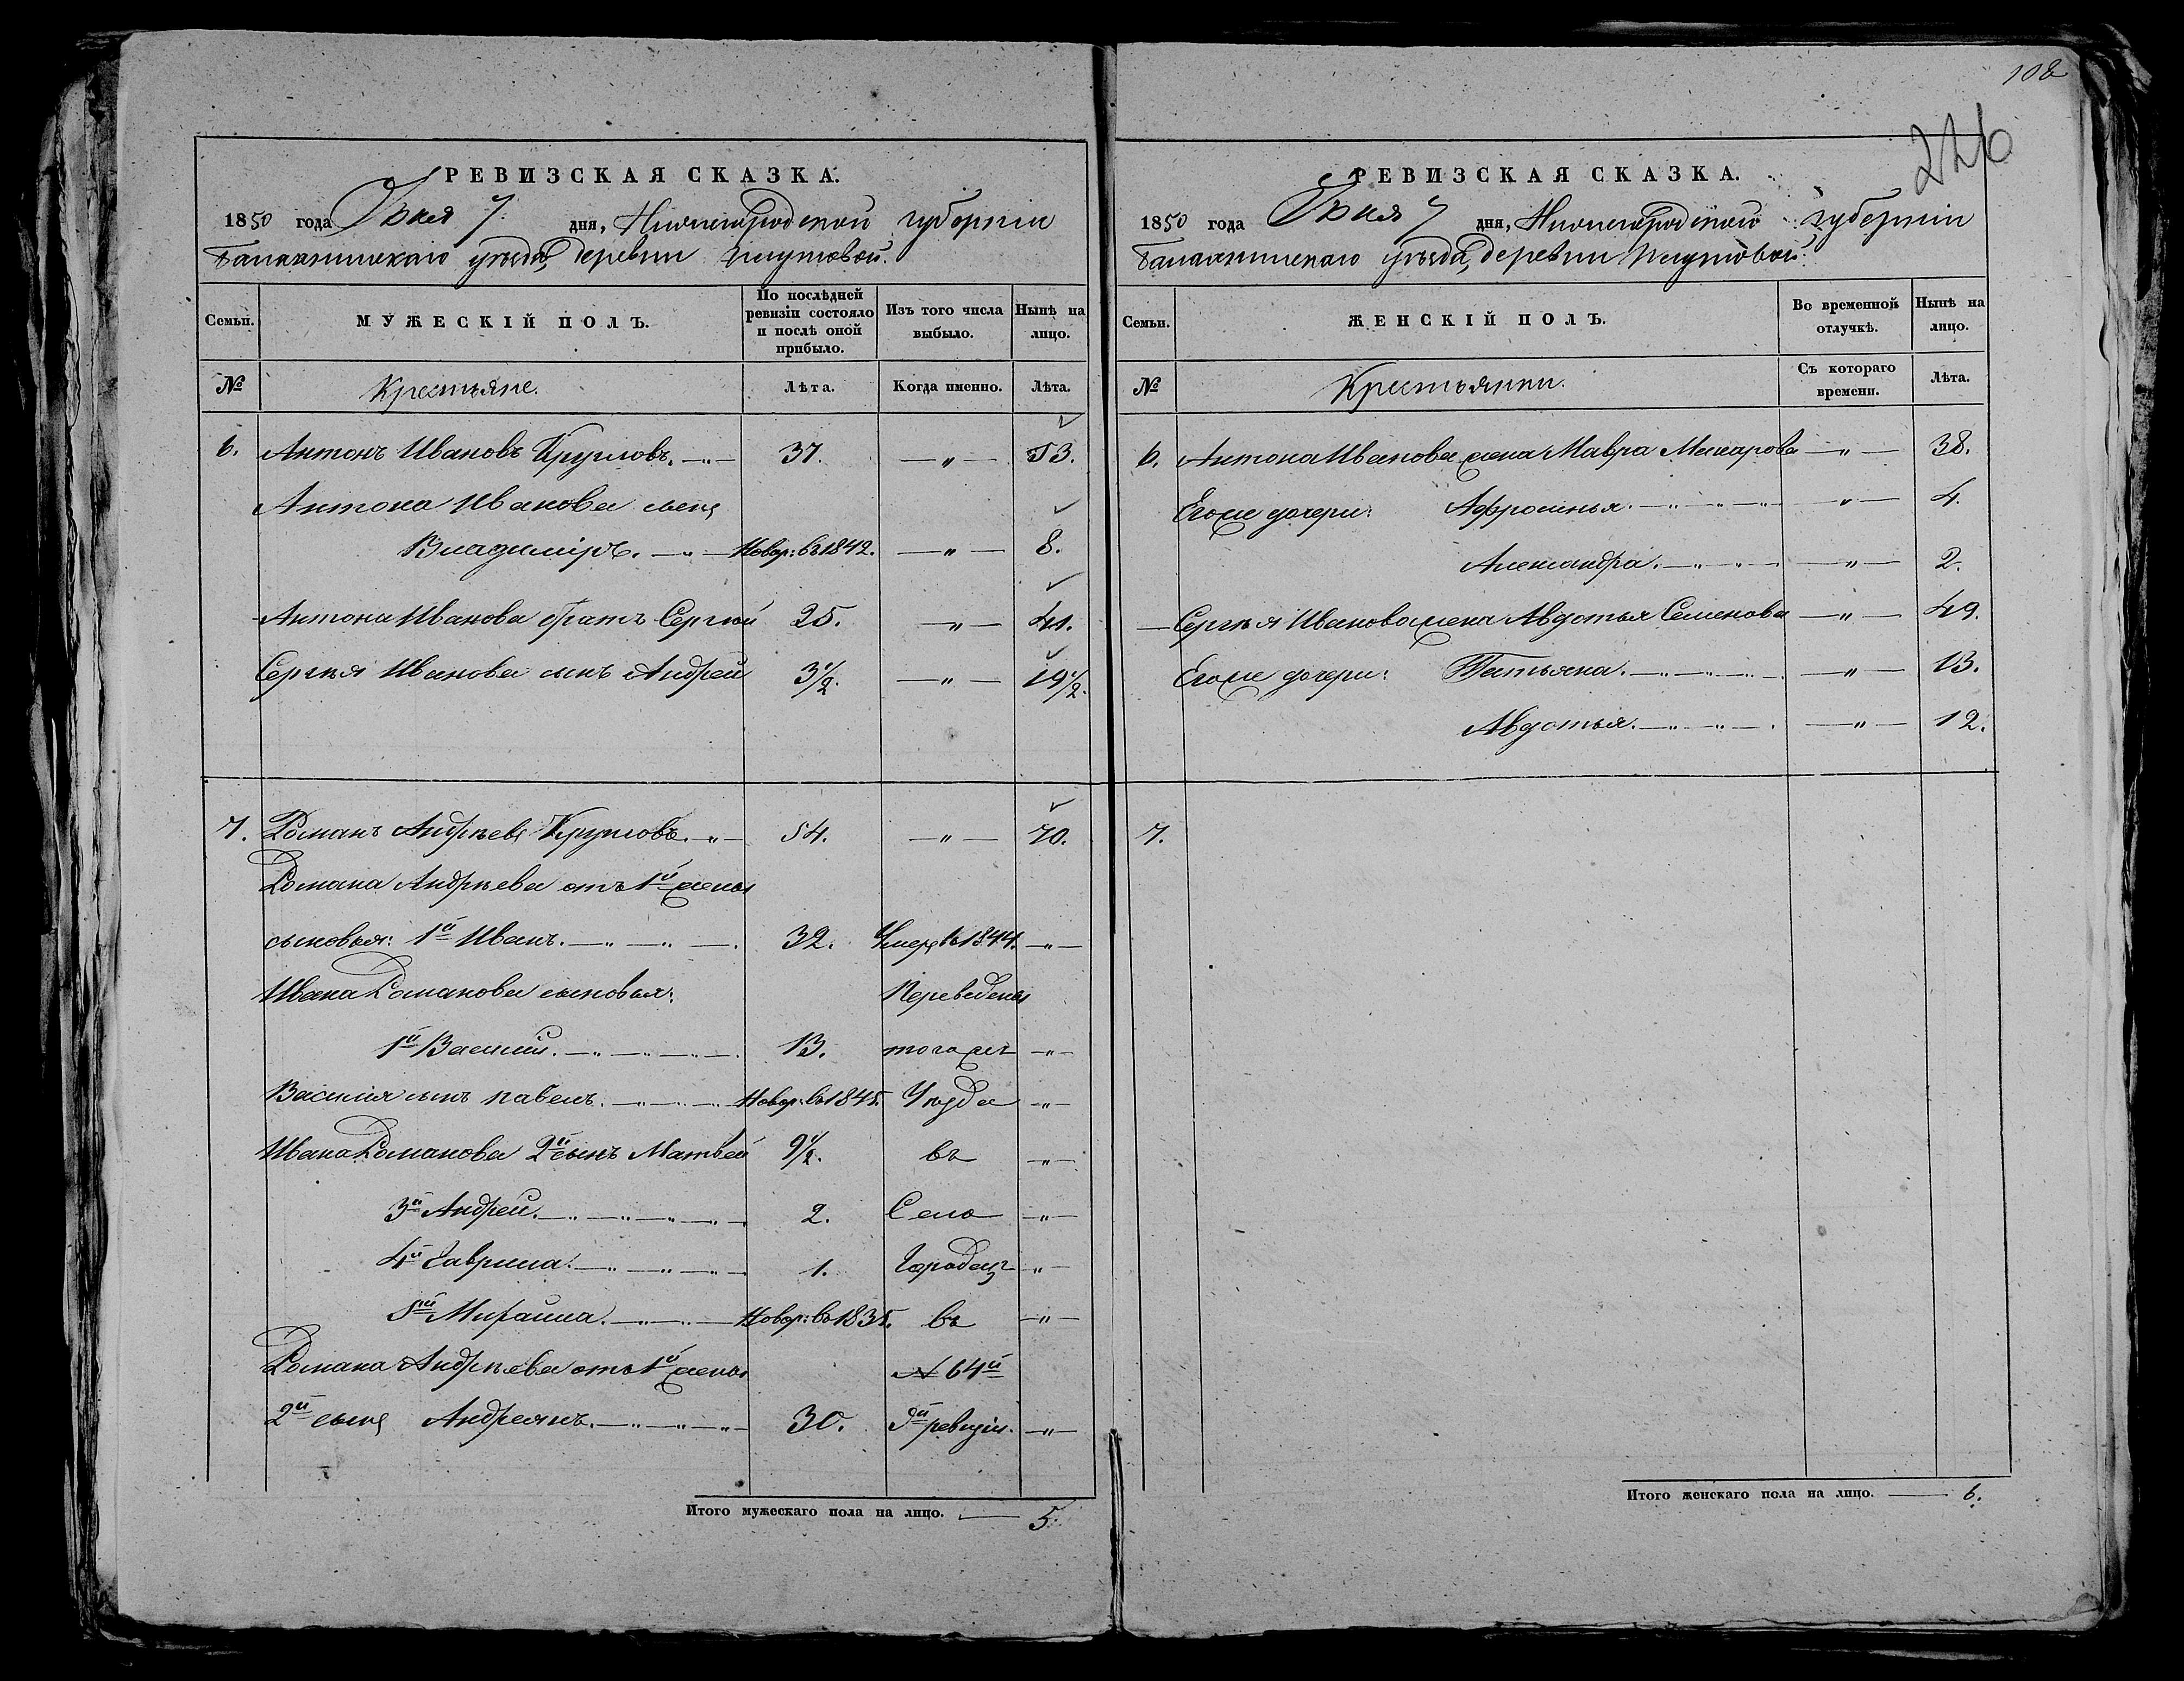 108
226
РЕВИЗСКАЯ СКАЗКА.
1850 года Іюня 7 дня, Нижегородской губерніи
Балахнинскаго уѣзда, деревни
Семьи.
МУЖЕСКІЙ ПОЛЪ.
По послѣдней ревизіи состояло и послѣ оной прибыло.
Изъ того числа выбыло.
Нынѣ на лицо.
№
Крестьяне.
Лѣта.
Когда именно.
Лѣта.
6. Антонъ Ивановъ Кругловъ. 37. — „ — 53.
Антона Иванова сынъ
Владиміръ. Новор: въ 1842. — „ — 8.
Антона Иванова братъ Сергѣй 25. — „ — 41.
Сергѣя Иванова сынъ Андрей 3 1/2. — „ — 19 1/2.
7. Романъ Андрѣевъ Кругловъ. 54. — „ — 70.
Романа Андрѣева отъ 1й жены
сыновья: 1й Иванъ. 32. Умеръ въ 1844. — „ —
Ивана Романова сыновья: Переведены
1й Василій. 13. тогожъ — „ —
Василія сынъ Павелъ. Новор: въ 1845. Уѣзда — „ —
Ивана Романова 2й сынъ Матвѣй 9 1/2. въ — „ —
3й Андрей. 2. Село — „ —
4й Гаврила. 1. Городецъ — „ —
5й Михайла. Новор: въ 1835. въ — „ —
Романа Андрѣева отъ 1й жены № 64й
2й сынъ Андреянъ. 30. 9й ревизіи. — „ —
Итого мужескаго пола на лицо. — 5.
РЕВИЗСКАЯ СКАЗКА.
1850 года Іюня 7 дня, Нижегородской губерніи
Балахнинскаго уѣзда, деревни
Семьи.
ЖЕНСКІЙ ПОЛЪ.
Во временной отлучкѣ.
Нынѣ на лицо.
№
Крестьянки.
Съ котораго времени.
Лѣта.
6. Антона Иванова жена Мавра Макарова — „ — 38.
Егоже дочери: Афросинья. — „ — 4.
Александра. — „ — 2.
Сергѣя Иванова жена Авдотья Семенова — „ — 49.
Егоже дочери: Татьяна. — „ — 13.
Авдотья. — „ — 12.
7.
Итого женскаго пола на лицо. — 6.